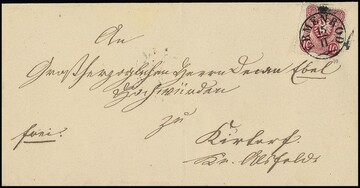 ERMENROD
An
Großherzoglichen Herrn Decan Ebel
Hochwürden
zu
frei.
Kirtorf.
Kr. Alsfeld.